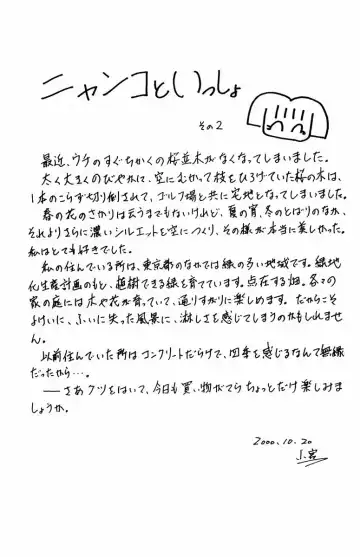 ニャンコといっしょ
その2
最近、ウチのすぐちかくの桜並木がなくなってしまいました。
太く大きくのびやかに、空にむかって枝をひろげていた桜の木は、
1本のこらず切り倒されて、ゴルフ場と共に宅地となってしまいました。
春の花のさかりは云うまでもないけれど、夏の宵、冬のとばりのなか、
それよりさらに濃いシルエットを空につくり、その様が本当に楽しかった。
私はとても好きでした。
私の住んでいる所は、東京都のなかでは緑の多い地域です。緑地
化生産計画のもと、植樹できる緑を育てています。点在する畑。各々の
家の庭には木や花が育っていて、通りすがりに楽しめます。だからこそ
よけいに、ふいに失った風景に、淋しさを感じてしまうのかもしれませ
ん。
以前住んでいた所はコンクリートだらけで、四季を感じるなんて無縁
だったから…。
──さあクツをはいて、今日も買い物がてらちょっとだけ楽しみま
しょうか。
2000.10.20